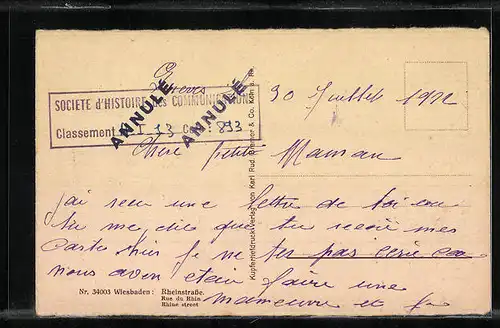 SOCIETE d'HISTOIRE des COMMUNICATIONS
Classement I-13 C 893
ANNULÉ
ANNULÉ
30 Juillet 1922
Chère petite Maman
j'ai recu une lettre de toi ou
tu me dis que tu recoi mes
Cartes je ne tes pas
nous avon etain faire une
manœuvre et
Kupfertiefdruckverlag von Karl Rud. & Co.
Nr. 34003 Wiesbaden: Rheinstraße.
Rue du Rhin
Rhine street